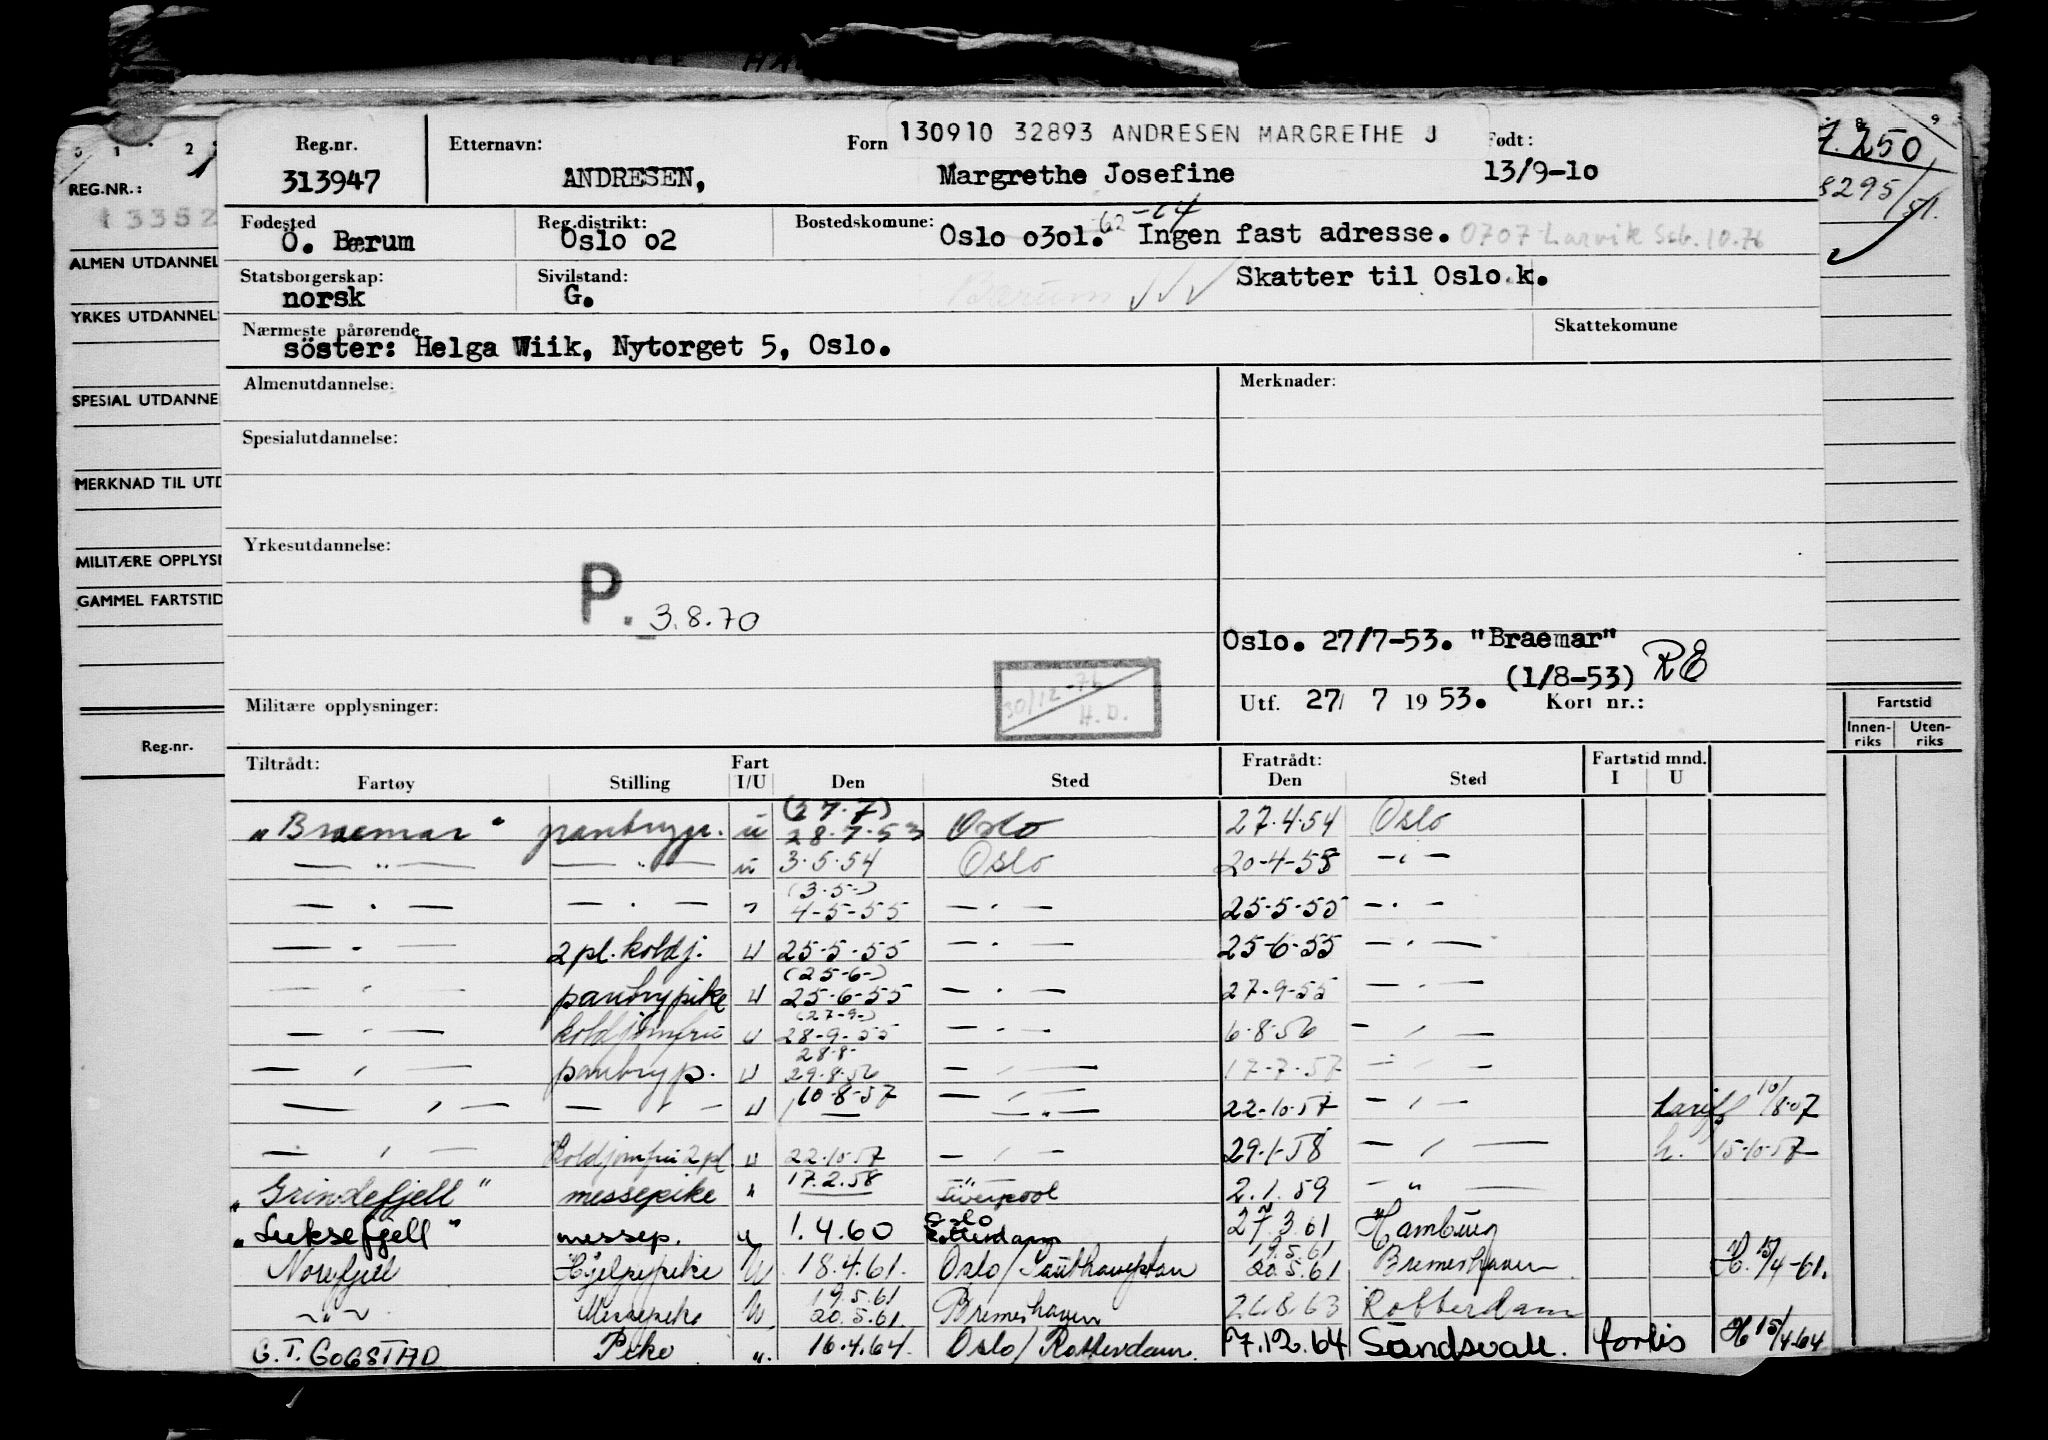 130910 32893 ANDRESEN MARGRETHE J
Reg.nr. Etternavn: Forn Født:
313947 ANDRESEN, Margrethe Josefine 13/9-10
Fødested Reg.distrikt: Bostedskomune:
Ö. Bærum Oslo 02 Oslo 0301. 62-64 Ingen fast adresse. 0707 Larvik 10.76
Statsborgerskap: Sivilstand: Skatter til Oslo k.
norsk G. Bærum
Nærmeste pårørende Skattekomune
söster: Helga Wiik, Nytorget 5, Oslo.
Almenutdannelse: Merknader:
Spesialutdannelse:
Yrkesutdannelse:
P. 3.8.70
Oslo. 27/7-53. "Braemar"
(1/8-53) RE
30/12-76 H.D.
Militære opplysninger: Utf. 27/ 7 1953. Kort nr.:
Tiltrådt: Fart Fratrådt: Fartstid mnd.
Fartøy Stilling I/U Den Sted Den Sted I U
(27.7)
"Braemar" pantrypi. u 28.7.53 Oslo 27.4.54 Oslo
— " — — " — u 3.5.54 Oslo 20-4-58 — " —
(3.5-)
— " — — " — " 4-5-55 — " — 25.5.55 — " —
— " — 2 pl. koldj. u 25.5.55 — " — 25-6-55 — " —
(25-6-)
— " — pantrypike u 25-6-55 — " — 27-9-55 — " —
(27-9-)
— " — koldjomfru u 28-9-55 — " — 6-8-56 — " —
28-8-
— " — pantryp. u 29.8.56 — " — 17-7-57 — " —
— " — — " — u 10-8-57 — " — 22-10-57 — " — 10/8-57
— " — Koldjomfru 2 pl. u 22.10.57 — " — 29.1.58 — " — h. 15-10-57
"Grindefjell" messepike " 17.2.58 Liverpool 2.1.59 — " —
Oslo
"Luksefjell" messep. u 1.4.60 Rotterdam 27.3.61 Hamburg
19.5.61
Norefjell Hjelpepike U 18.4.61. Oslo/Southampton 20.5.61 Bremerhaven H. 15/4-61.
19.5.61
— " — Messepike U 20.5.61 Bremerhaven 26.8.63 Rotterdam
C. T. GOGSTAD Pike ". 16.4.64. Oslo/Rotterdam. 7.12.64 Sundsvall. H 15/4-64
0 1 2
REG.NR.:
ALMEN UTDANNEL
YRKES UTDANNEL
SPESIAL UTDANNE
MERKNAD TIL UTD
MILITÆRE OPPLYS
GAMMEL FARTSTID
Reg.nr.
8 9
7.250
8295/51.
Fartstid
Innen-riks Uten-riks